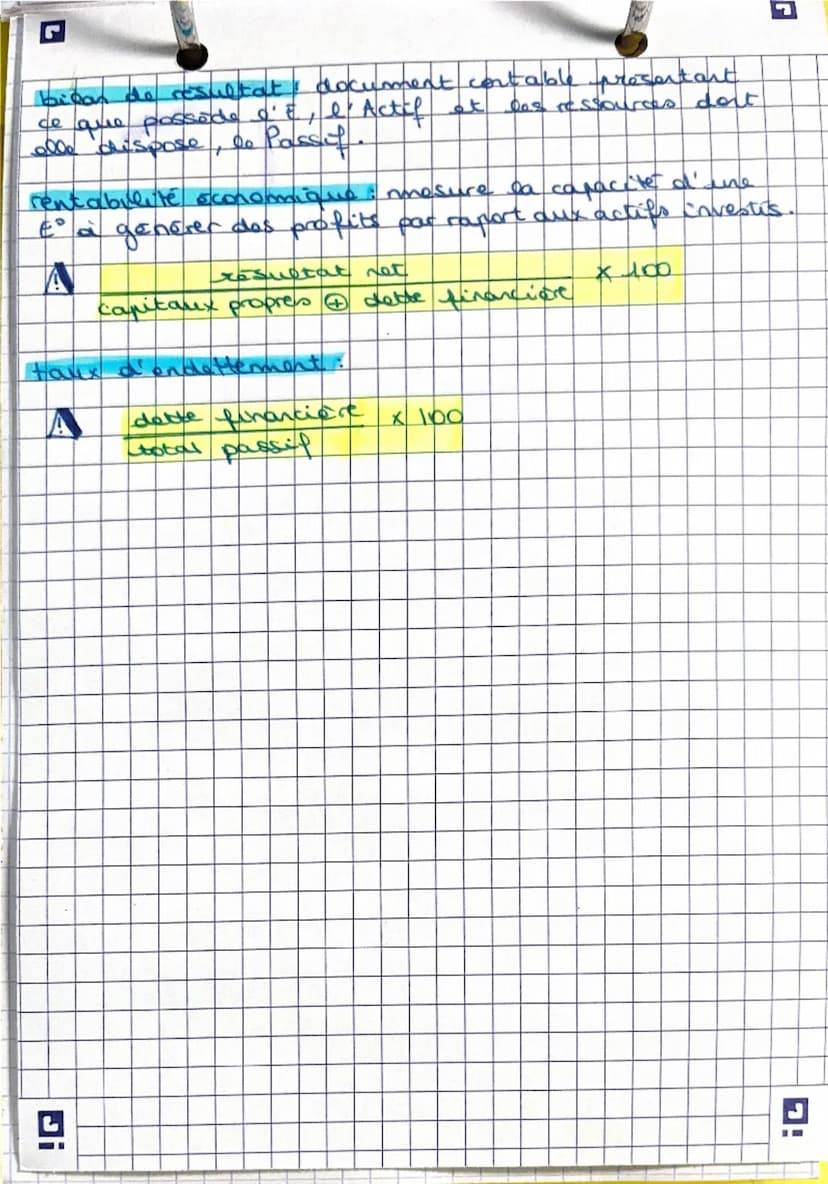 bilan de résultat : document contable présentant
ce que possède l'E, l'Actif et les ressources dont
elle dispose, le Passif.
rentabilité économique : mesure la capacité d'une
E° à générer des profits par raport aux actifs investis.
résultat net
x 100
capitaux propres + dette financière
taux d'endettement :
dette financière
x 100
total passif